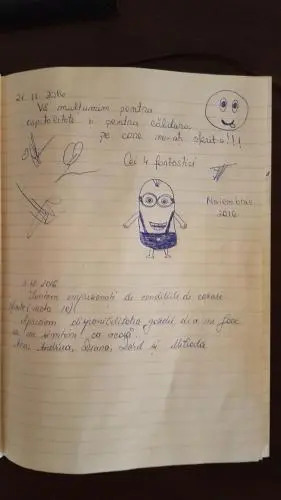 21.11.2016
Vă mulțumim pentru
ospitalitate și pentru căldura
pe care ne-ați oferit-o!!!
Cei 4 fantastici
Noiembrie
2016
.12.2016
Suntem impresionați de condițiile de cazare
(nota 10)!
Apreciem disponibilitatea gazdei de a ne face
să ne simțim ca acasă.
Andreea, și